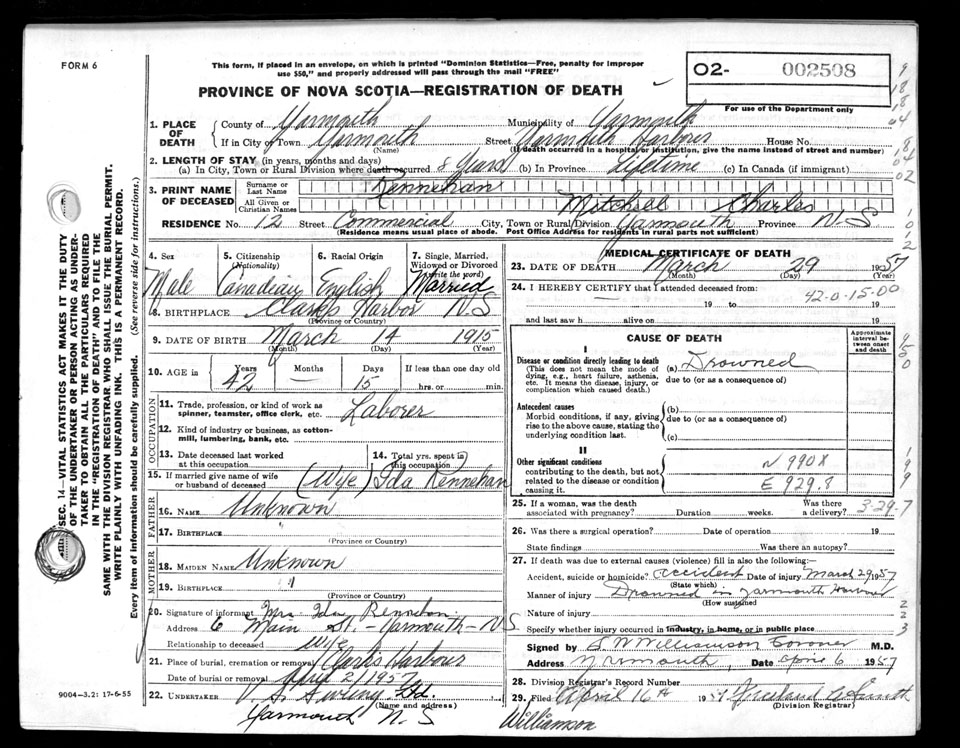 FORM 6
This form, if placed in an envelope, on which is printed "Dominion Statistics—Free, penalty for improper
use $50," and properly addressed will pass through the mail "FREE"
PROVINCE OF NOVA SCOTIA—REGISTRATION OF DEATH
02- 002508
For use of the Department only
1. PLACE OF DEATH
County of Yarmouth Municipality of Yarmouth
If in City of Town Yarmouth Street Yarmouth Harbour House No.
(Name) (If death occurred in a hospital or institution, give the name instead of street and number)
2. LENGTH OF STAY (in years, months and days)
(a) In City, Town or Rural Division where death occurred 8 Years (b) In Province Lifetime (c) In Canada (if immigrant)
3. PRINT NAME OF DECEASED
Surname or Last Name Kennehan
All Given or Christian Names Mitchell Charles
RESIDENCE No. 12 Street Commercial City, Town or Rural Division Yarmouth Province N.S
(Residence means usual place of abode. Post Office Address for residents in rural parts not sufficient)
4. Sex
Male
5. Citizenship
(Nationality)
Canadian
6. Racial Origin
English
7. Single, Married,
Widowed or Divorced
(Write the word)
Married
8. BIRTHPLACE Clarks Harbor N.S
(Province or Country)
9. DATE OF BIRTH March 14 1915
(Month) (Day) (Year)
10. AGE in Years Months Days If less than one day old
42 — 15 hrs. or min.
OCCUPATION
11. Trade, profession, or kind of work as
spinner, teamster, office clerk, etc. Laborer
12. Kind of industry or business, as cotton-
mill, lumbering, bank, etc.
13. Date deceased last worked
at this occupation
14. Total yrs. spent in
this occupation
15. If married give name of wife
or husband of deceased (Wife) Ida Kennehan
FATHER
16. NAME Unknown
17. BIRTHPLACE
(Province or Country)
MOTHER
18. MAIDEN NAME Unknown
19. BIRTHPLACE "
(Province or Country)
20. Signature of informant Mrs. Ida Kennehan
Address 6 Main St. - Yarmouth - N S
Relationship to deceased Wife
21. Place of burial, cremation or removal Clarks Harbour
Date of burial or removal April 2/1957
(Name and address)
22. UNDERTAKER V. S. Sweeny Ltd.
Yarmouth N. S
9004-3.2: 17-6-55
MEDICAL CERTIFICATE OF DEATH
23. DATE OF DEATH March 29 1957
(Month) (Day) (Year)
24. I HEREBY CERTIFY that I attended deceased from:
42-0-15-00
19 to 19
and last saw h alive on 19
CAUSE OF DEATH
Approximate interval between onset and death
I
Disease or condition directly leading to death
(This does not mean the mode of
dying, e.g., heart failure, asthenia,
etc. It means the disease, injury, or
complication which caused death.)
(a) Drowned
due to (or as a consequence of)
Antecedent causes
Morbid conditions, if any, giving
rise to the above cause, stating the
underlying condition last.
(b)
due to (or as a consequence of)
(c)
II
Other significant conditions
contributing to the death, but not
related to the disease or condition
causing it.
N 990X
E 929.8
25. If a woman, was the death
associated with pregnancy? Duration weeks. Was there a delivery?
3-29-7
26. Was there a surgical operation? Date of operation 19
State findings Was there an autopsy?
27. If death was due to external causes (violence) fill in also the following:
Accident, suicide or homicide? Accident Date of injury March 29 1957
(State which)
Manner of injury Drowned in Yarmouth Harbour
(How sustained)
Nature of injury
Specify whether injury occurred in industry, in home, or in public place
Signed by S. W. Williamson Coroner M.D.
Address Yarmouth, Date April 6 1957
28. Division Registrar's Record Number
29. Filed April 16th 1957
(Division Registrar)
Williamson
SEC. 14—VITAL STATISTICS ACT MAKES IT THE DUTY
OF THE UNDERTAKER OR PERSON ACTING AS UNDER-
TAKER TO OBTAIN ALL THE PARTICULARS REQUIRED
IN THE "REGISTRATION OF DEATH" AND TO FILE THE
SAME WITH THE DIVISION REGISTRAR WHO SHALL ISSUE THE BURIAL PERMIT.
WRITE PLAINLY WITH UNFADING INK. THIS IS A PERMANENT RECORD.
Every item of information should be carefully supplied. (See reverse side for instructions.)